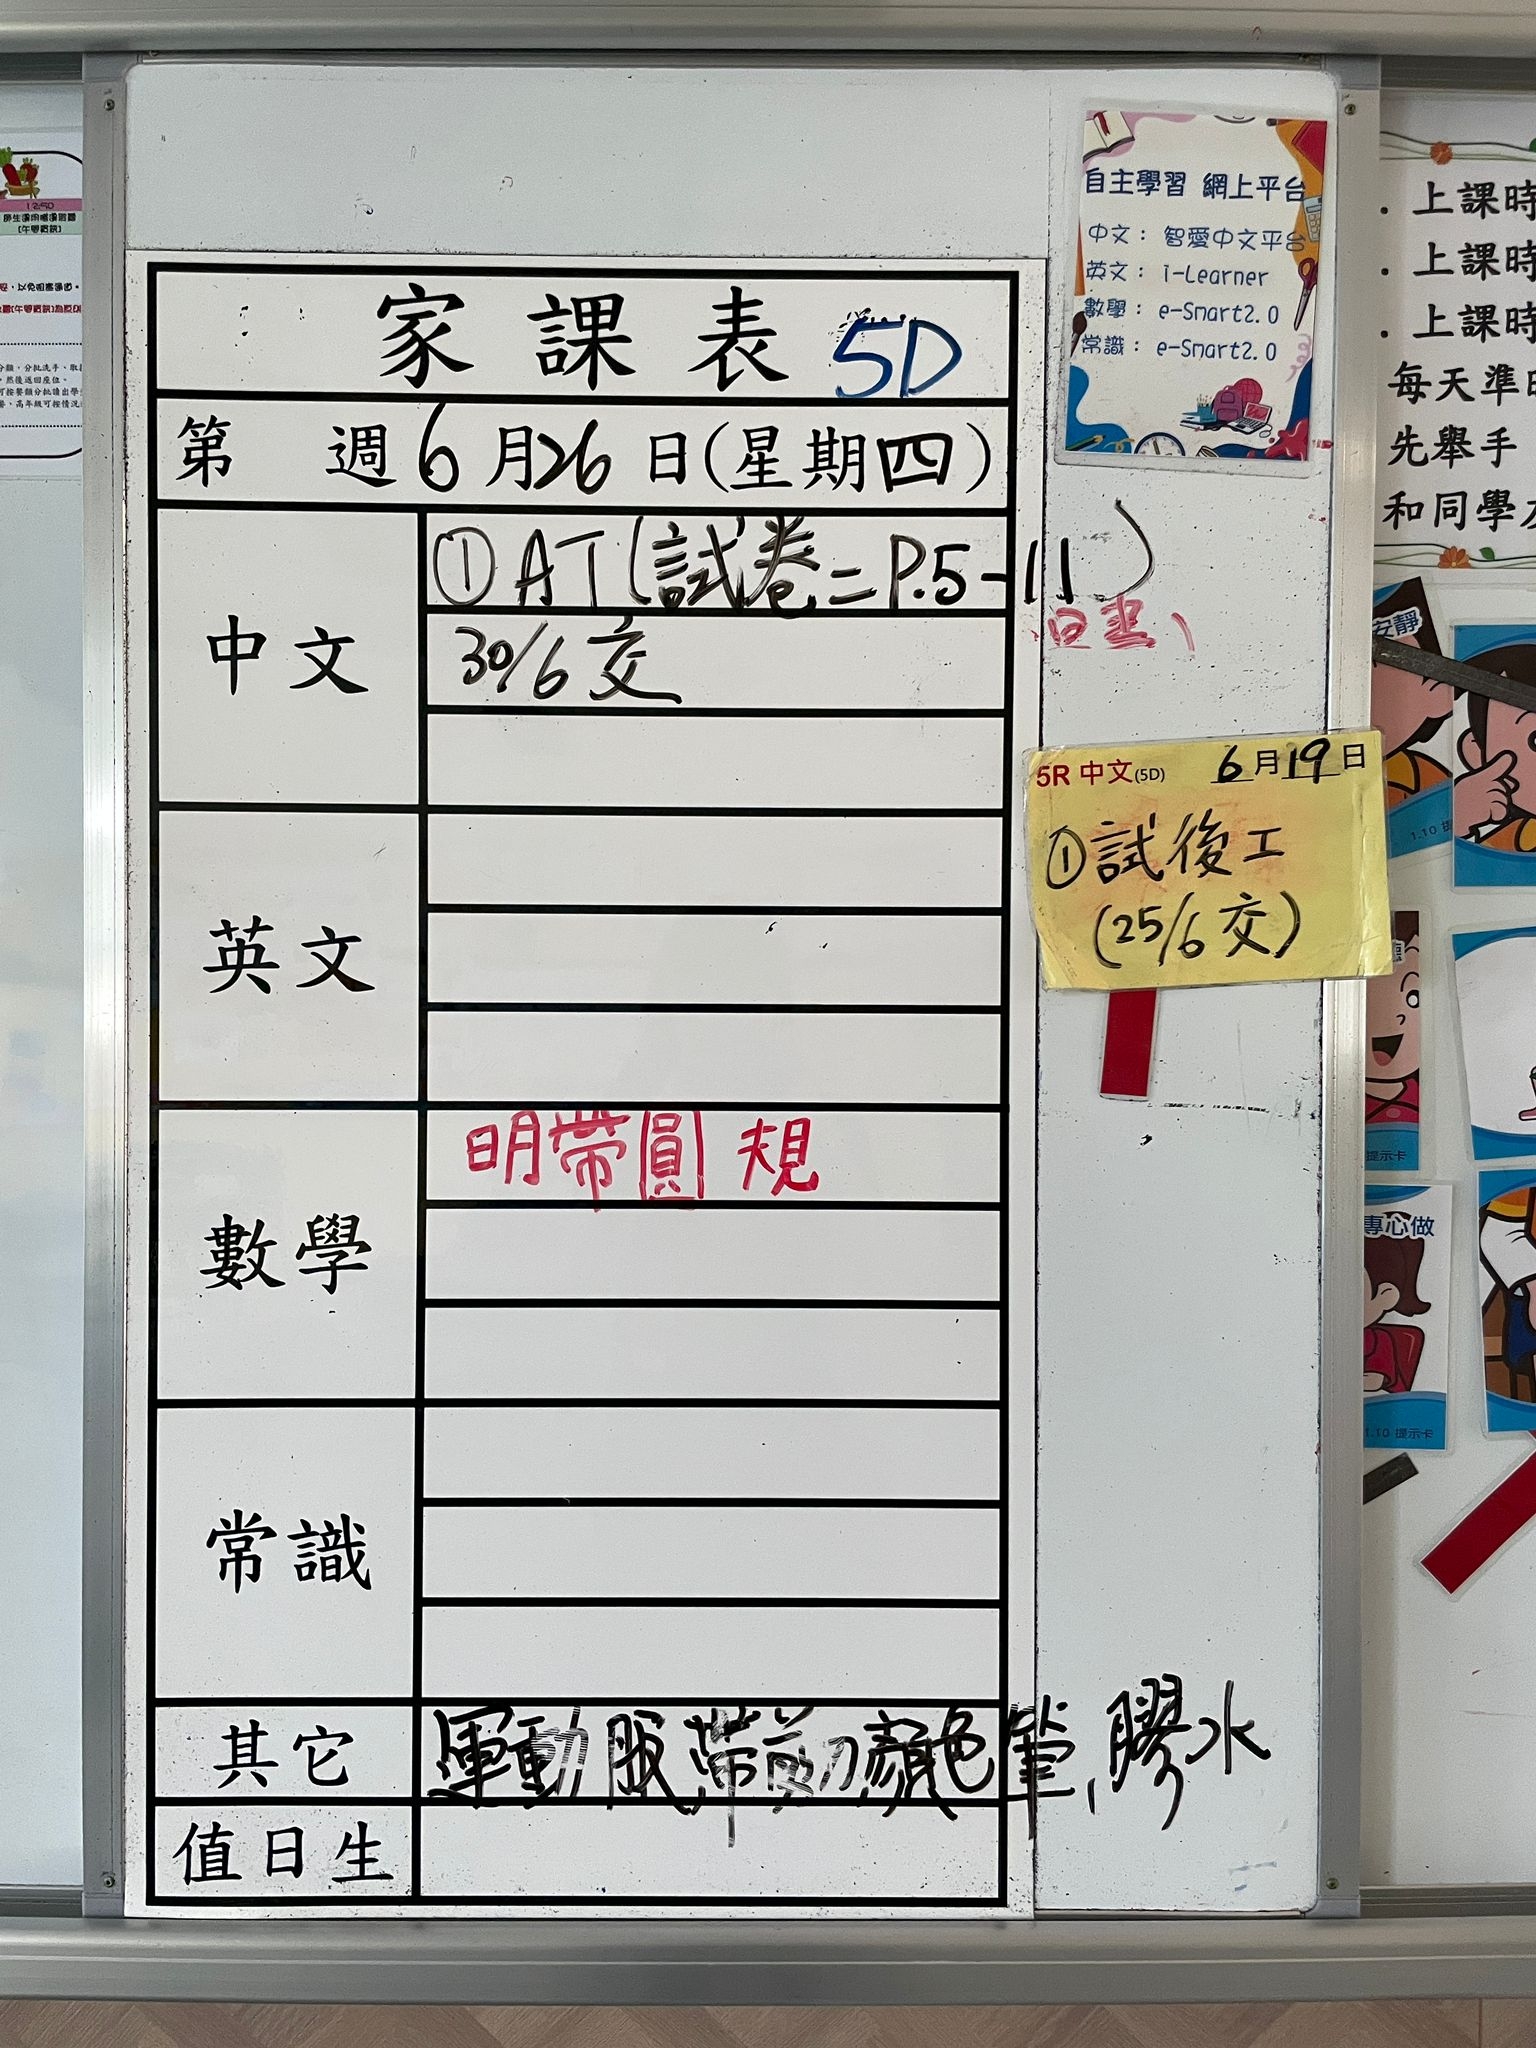 家課表 5D
第 週 6月26日(星期四)
中文
①AT(試卷二P.5-11)
30/6交
英文
數學
明帶圓規
常識
其它
運動服,帶剪刀,顏色筆,膠水
值日生
自主學習 網上平台
中文： 智愛中文平台
英文： i-Learner
數學： e-Smart2.0
常識： e-Smart2.0
5R 中文(5D) 6月19日
①試後工
(25/6交)
12:50
. 上課時
. 上課時
. 上課時
每天準
先舉手
和同學
安靜
1.10 提
提示卡
專心做
1.10 提示卡